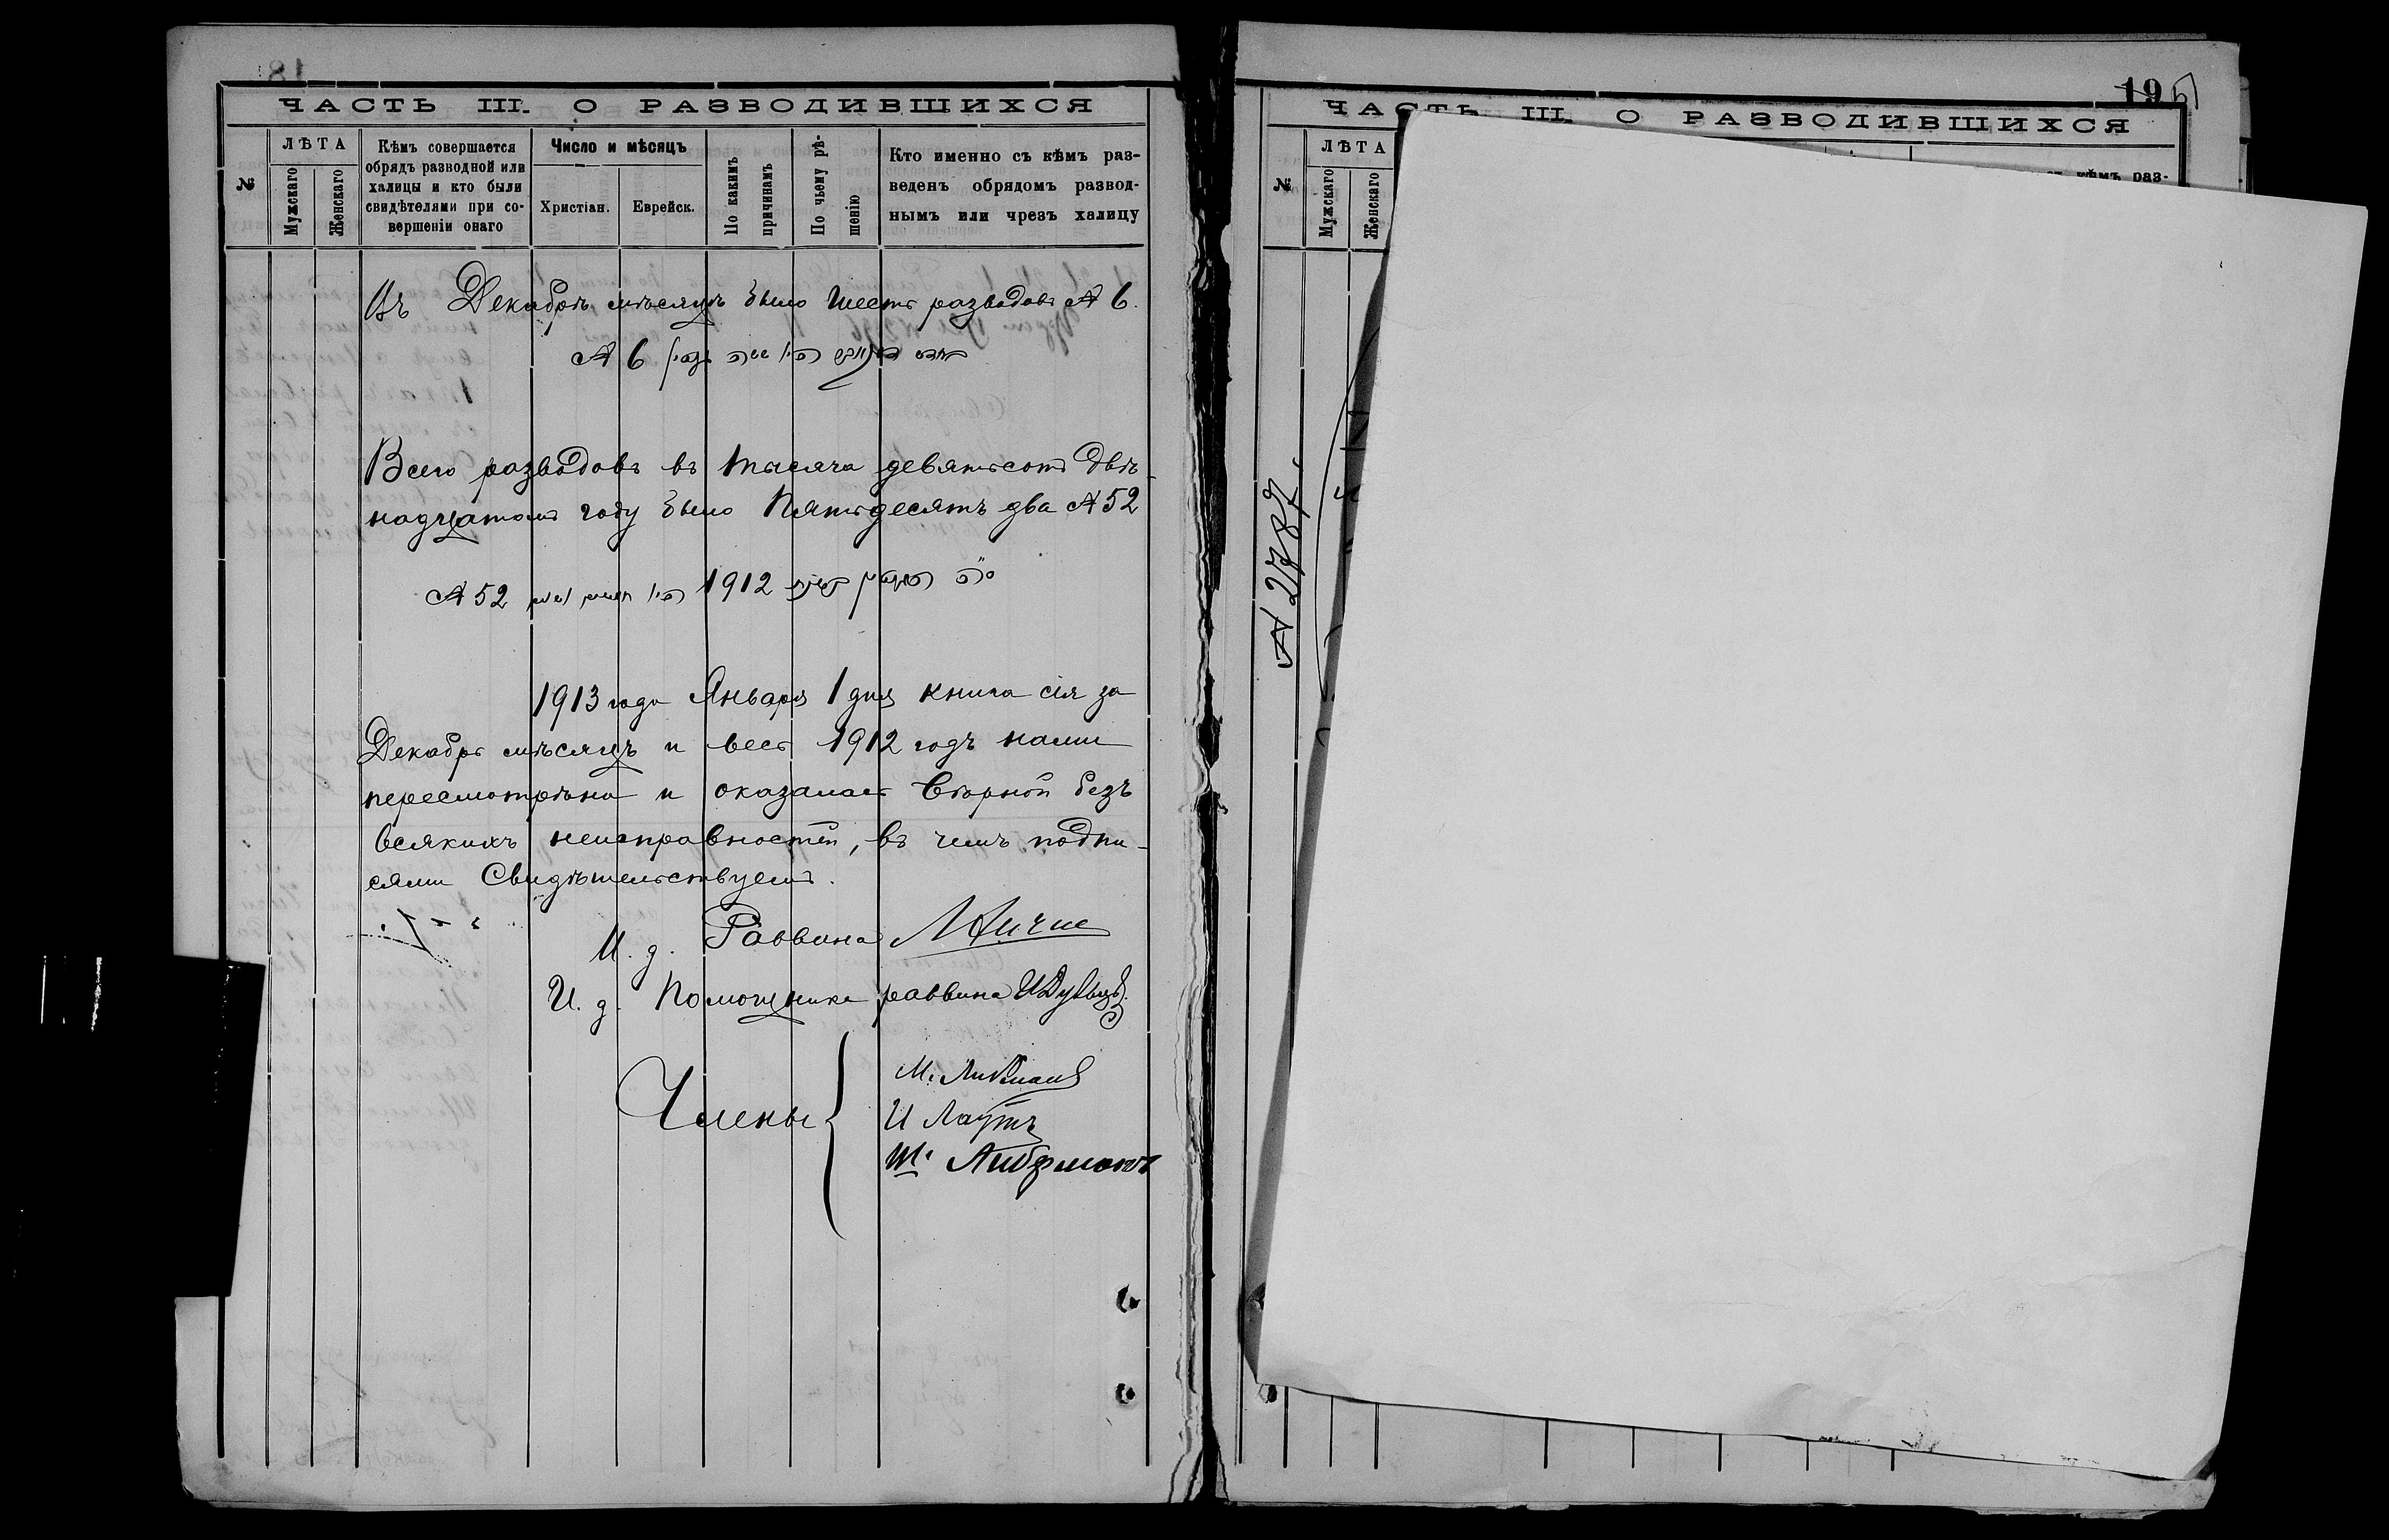 ЧАСТЬ III. О РАЗВОДИВШИХСЯ
№
ЛѢТА
Мужскаго
Женскаго
Кѣмъ совершается
обрядъ разводной или
халицы и кто были
свидѣтелями при со-
вершеніи онаго
Число и мѣсяцъ
Христіан.
Еврейск.
По какимъ
причинамъ
По чьему рѣ-
шенію
Кто именно съ кѣмъ раз-
веденъ обрядомъ развод-
нымъ или чрезъ халицу
Въ Декабрѣ мѣсяцѣ было шесть разводовъ № 6.
№ 6
Всего разводовъ въ тысяча девятьсотъ двѣ-
надцатомъ году было Пятьдесятъ два № 52
№ 52 1912
1913 года Января 1 дня книга сія за
Декабрь мѣсяцъ и весь 1912 годъ нами
пересмотрѣна и оказалась вѣрной безъ
всякихъ неисправностей, въ чемъ подпи-
сями Свидѣтельствуемъ.
И. д. Раввина
И. д. Помощника раввина
Члены
М. Либманъ
И Лаутъ
Ш. Либерманъ
19
ЧАСТЬ III. О РАЗВОДИВШИХСЯ
№
ЛѢТА
Мужскаго
Женскаго
кѣмъ раз-
№ 2787